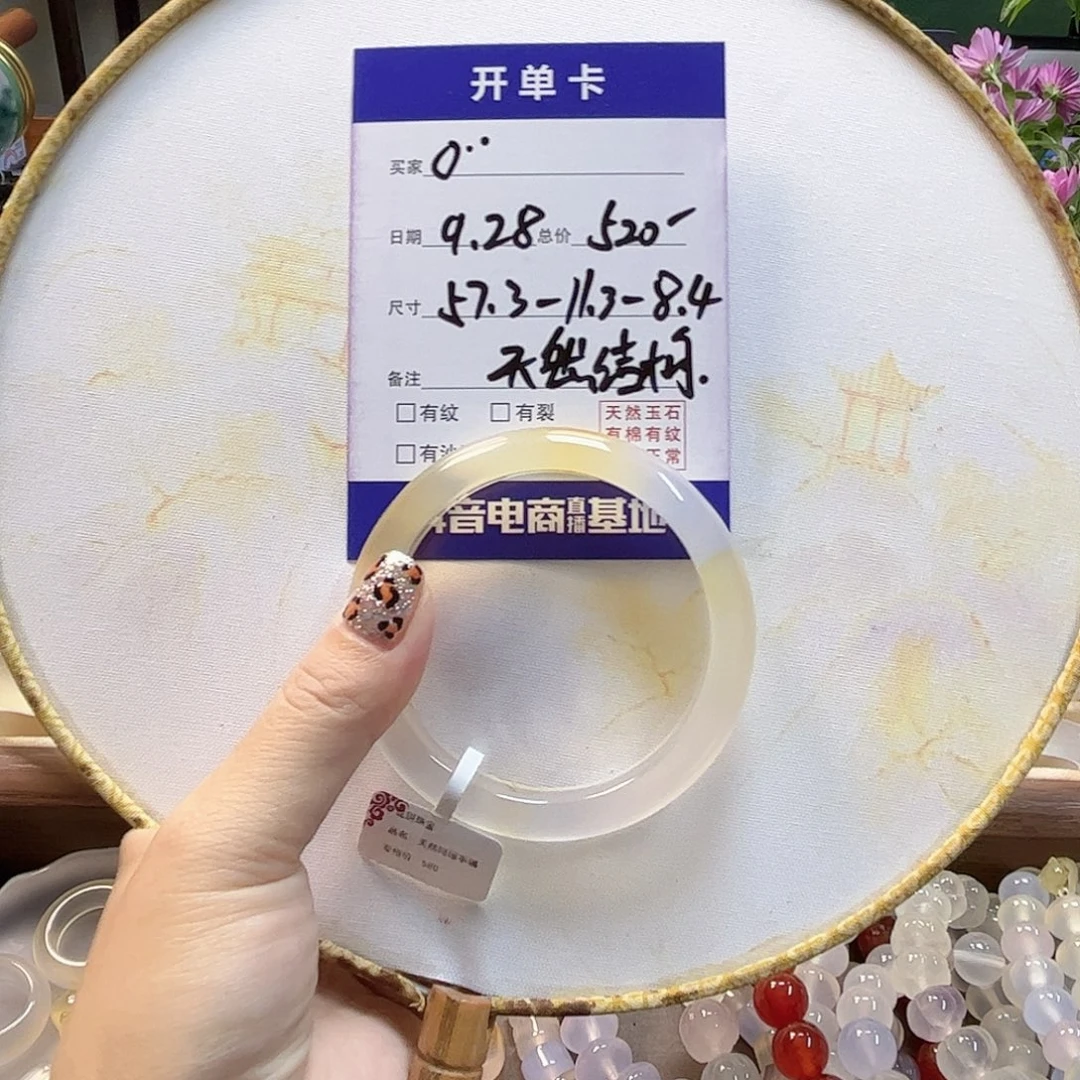 开单卡
买家 0··
日期 9.28 总价 520-
尺寸 57.3-11.3-8.4
备注 天然结构.
□有纹 □有裂
天然玉石
有棉有纹
□有
正常
音电商直播基地
品名
580